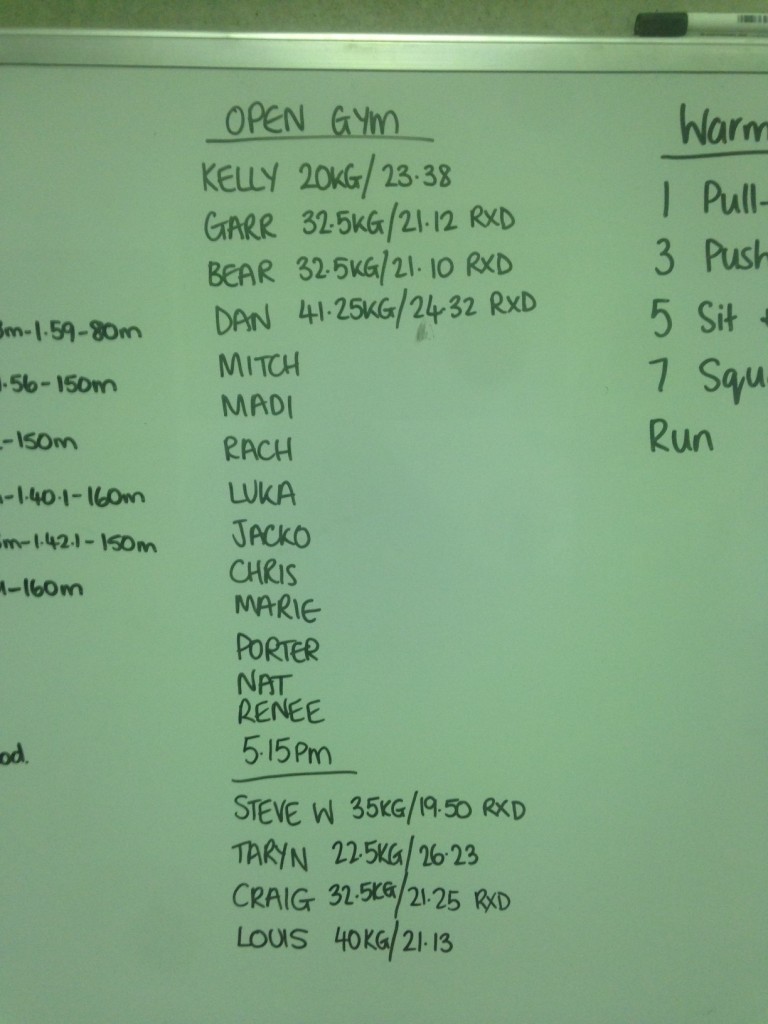 OPEN GYM
KELLY 20KG/23.38
GARR 32.5KG/21.12 RXD
BEAR 32.5KG/21.10 RXD
DAN 41.25KG/24.32 RXD
MITCH
MADI
RACH
LUKA
JACKO
CHRIS
MARIE
PORTER
NAT
RENEE
5.15pm
STEVE W 35KG/19.50 RXD
TARYN 22.5KG/26.23
CRAIG 32.5KG/21.25 RXD
LOUIS 40KG/21.13
m-1.59-80m
.56-150m
-150m
-1.40.1-160m
m-1.42.1-150m
-160m
od.
Warm
1 Pull-
3 Push
5 Sit
7 Squ
Run